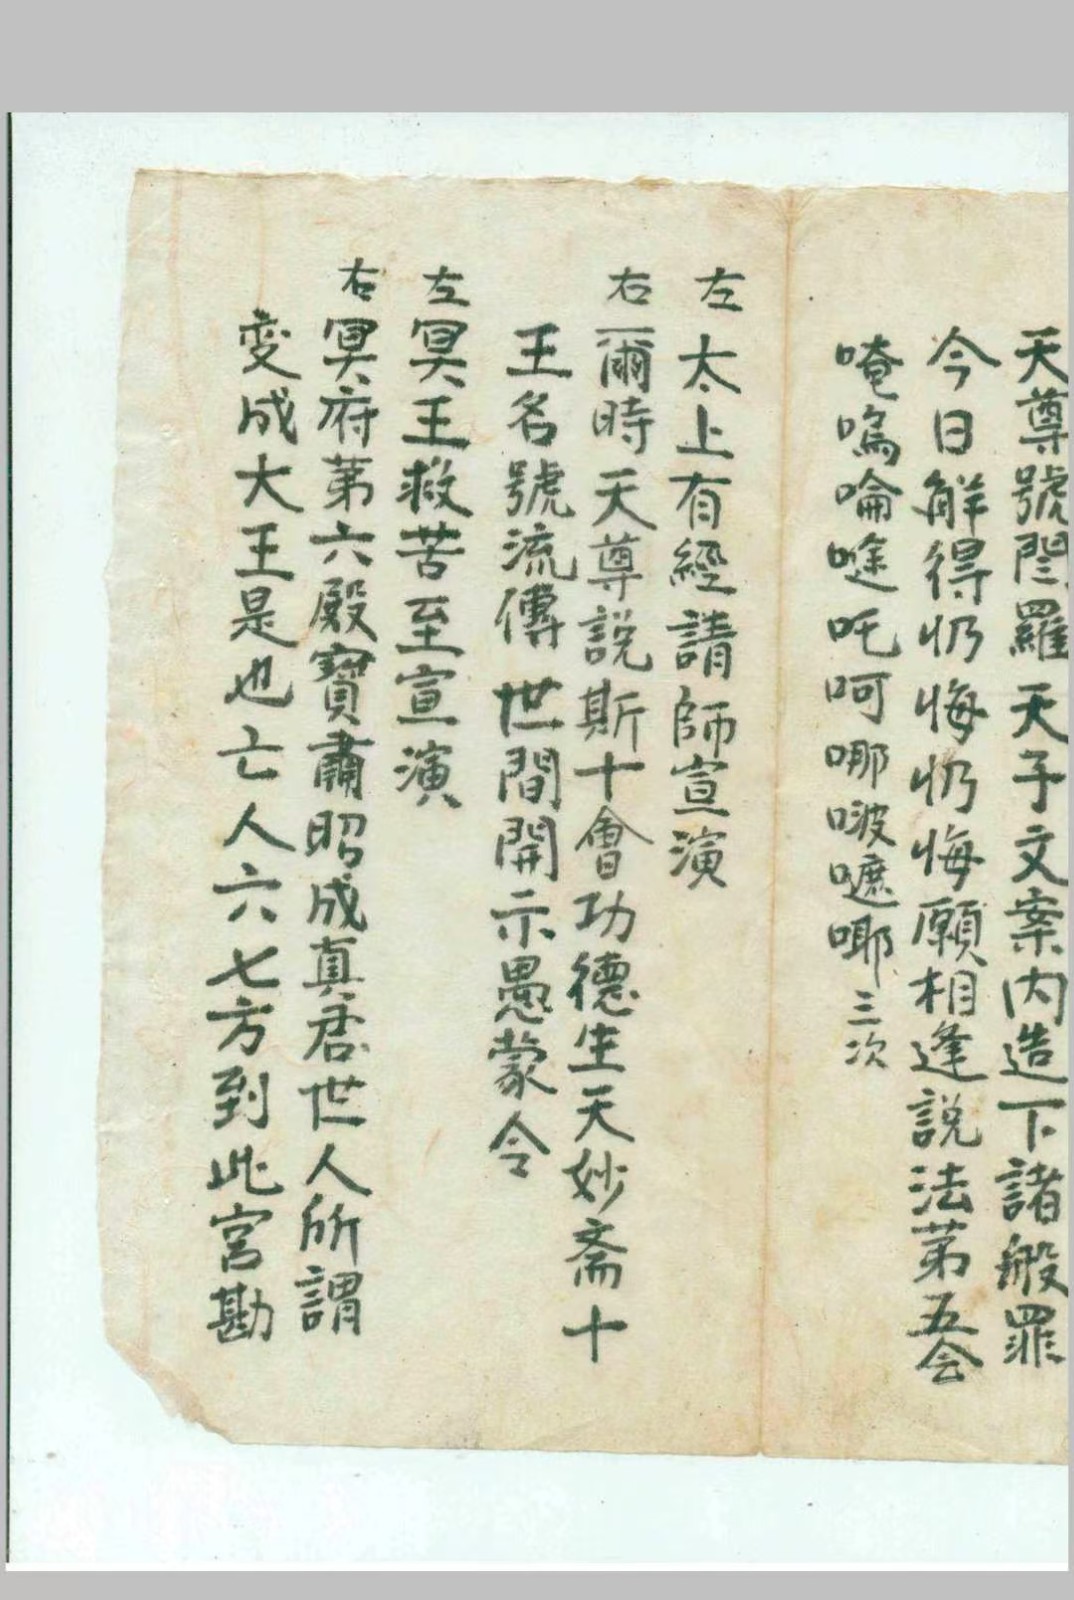 天尊號閻羅天子文案內造下諸般罪
今日解得忏悔忏悔願相逢說法第五会
唵嗚㖮㗝吒呵哪啵嗻哪三次
左太上有經請師宣演
右爾時天尊説斯十會功德生天妙斋十
王名號流傳世間開示愚蒙令
左冥王救苦至宣演
右冥府第六殿寶肅昭成真君世人所謂
变成大王是也亡人六七方到此宮勘